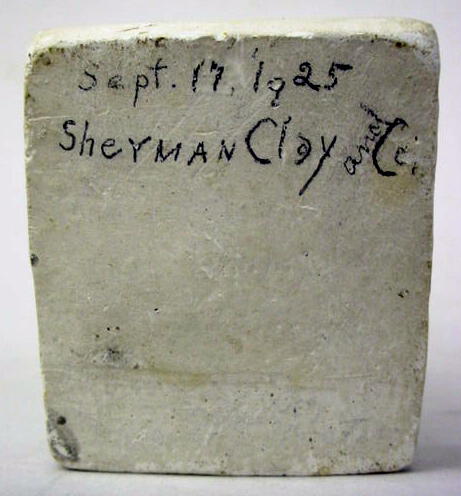 Sept. 17, 1925
SherMAN Clay and Co.